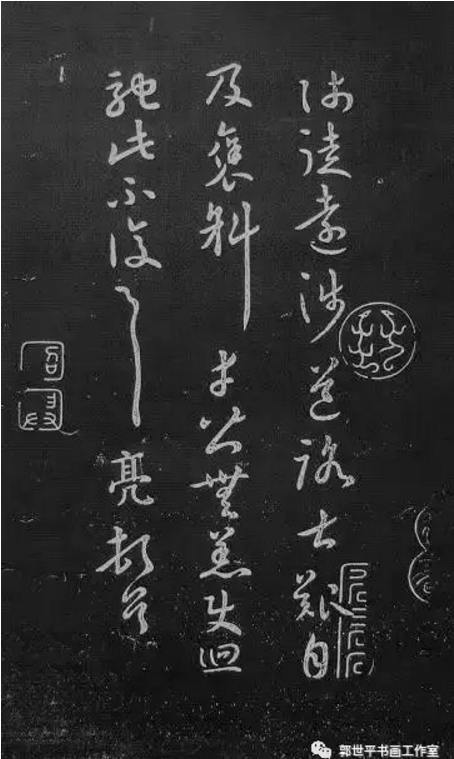 師徒遠涉道路甚艱自
及褒斜幸皆無恙使迴
馳此不復云云亮頓首
郭世平书画工作室